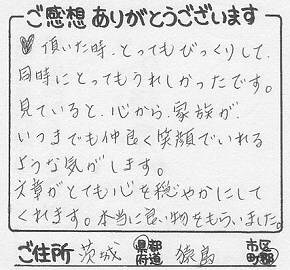 ご感想ありがとうございます
♡頂いた時、とってもびっくりして、
同時にとってもうれしかったです。
見ていると、心から、家族が、
いつまでも仲良く笑顔でいれる
ような気がします。
文章がとても心を穏やかにして
くれます。本当に良い物をもらいました。
ご住所 茨城 都道府県 猿島 市区町郡